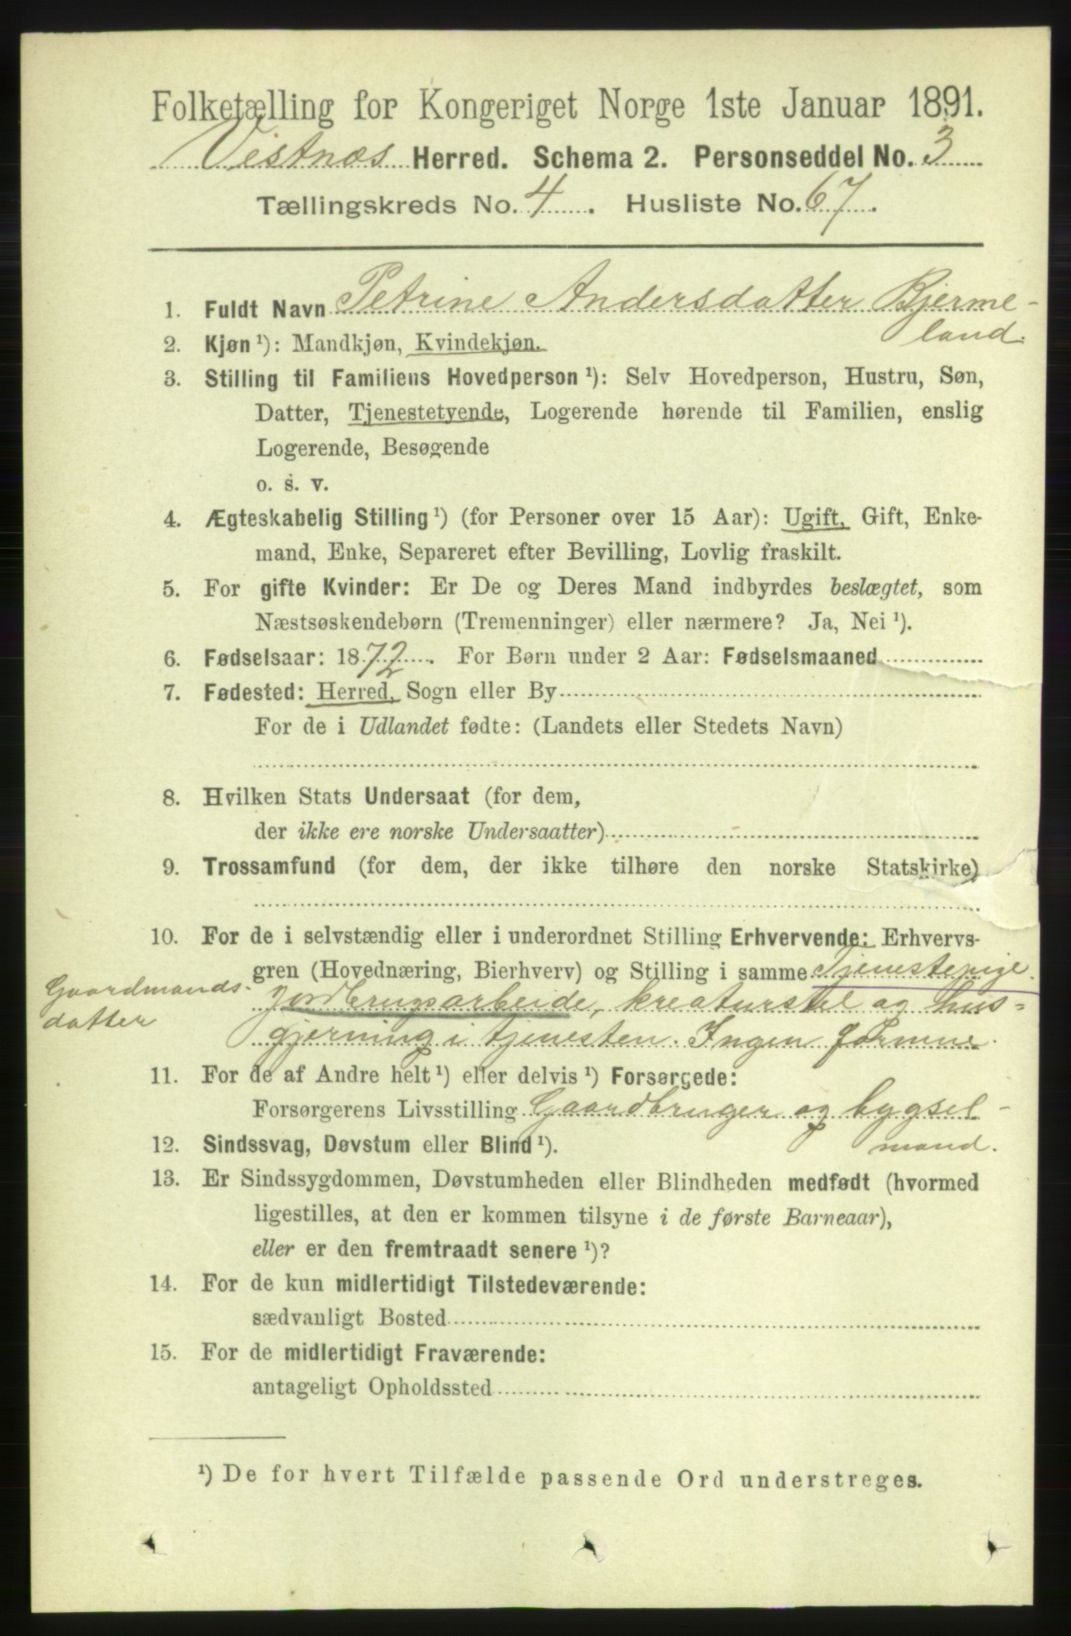 Folketælling for Kongeriget Norge 1ste Januar 1891.
Vestnæs Herred. Schema 2. Personseddel No. 3
Tællingskreds No. 4. Husliste No. 67.
1. Fuldt Navn Petrine Andersdatter Bjerme-
land.
2. Kjøn ¹): Mandkjøn, Kvindekjøn.
3. Stilling til Familiens Hovedperson ¹): Selv Hovedperson, Hustru, Søn,
Datter, Tjenestetyende, Logerende hørende til Familien, enslig
Logerende, Besøgende
o. s. v.
4. Ægteskabelig Stilling ¹) (for Personer over 15 Aar): Ugift, Gift, Enke-
mand, Enke, Separeret efter Bevilling, Lovlig fraskilt.
5. For gifte Kvinder: Er De og Deres Mand indbyrdes beslægtet, som
Næstsøskendebørn (Tremenninger) eller nærmere? Ja, Nei ¹).
6. Fødselsaar: 1872. For Børn under 2 Aar: Fødselsmaaned
7. Fødested: Herred, Sogn eller By
For de i Udlandet fødte: (Landets eller Stedets Navn)
8. Hvilken Stats Undersaat (for dem,
der ikke ere norske Undersaatter)
9. Trossamfund (for dem, der ikke tilhøre den norske Statskirke)
10. For de i selvstændig eller i underordnet Stilling Erhvervende: Erhvervs-
gren (Hovednæring, Bierhverv) og Stilling i samme Tjenestepige.
Gaardmands-
datter
Jordbrugsarbeide, kreaturstel og hus-
gjerning i tjenesten. Ingen formue.
11. For de af Andre helt ¹) eller delvis ¹) Forsørgede:
Forsørgerens Livsstilling Gaardbruger og bygsel-
mand.
12. Sindssvag, Døvstum eller Blind ¹).
13. Er Sindssygdommen, Døvstumheden eller Blindheden medfødt (hvormed
ligestilles, at den er kommen tilsyne i de første Barneaar),
eller er den fremtraadt senere ¹)?
14. For de kun midlertidigt Tilstedeværende:
sædvanligt Bosted
15. For de midlertidigt Fraværende:
antageligt Opholdssted
¹) De for hvert Tilfælde passende Ord understreges.